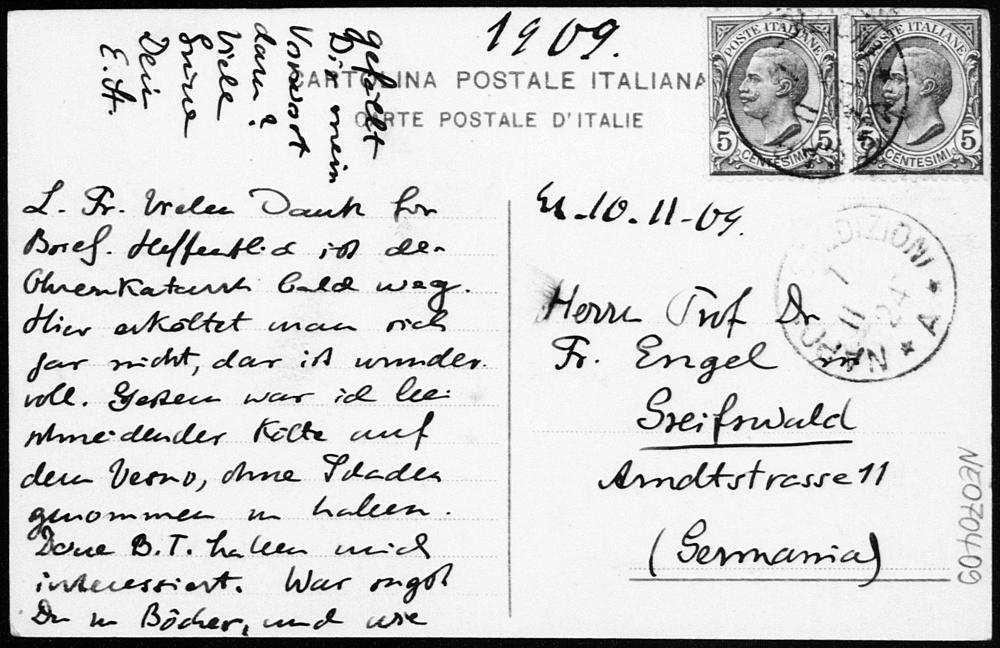 1909.
CARTOLINA POSTALE ITALIANA
CARTE POSTALE D'ITALIE
POSTE ITALIANE
5 CENTESIMI 5
POSTE ITALIANE
5 CENTESIMI 5
L. Fr. Vielen Dank für
Brief. Hoffentlich ist der
Ohrenkatarrh bald weg.
Hier erkältet man sich
gar nicht, dar ist wunder-
voll. Gestern war ich bei
schneidender Kälte auf
dem Vesuv, ohne Schaden
genommen zu haben.
Deine B. T. haben mich
interessiert. Was sagst
Du zu Böcher, und wie
gefällt
Dir mein
Vorwort
dazu?
Viele
Grüsse
Dein
E. A.
10.11.09.
Herrn Prof Dr
Fr. Engel in
Greifswald
Arndtstrasse 11
(Germania)
NAPOLI
DIZIONI
A
NEO70409